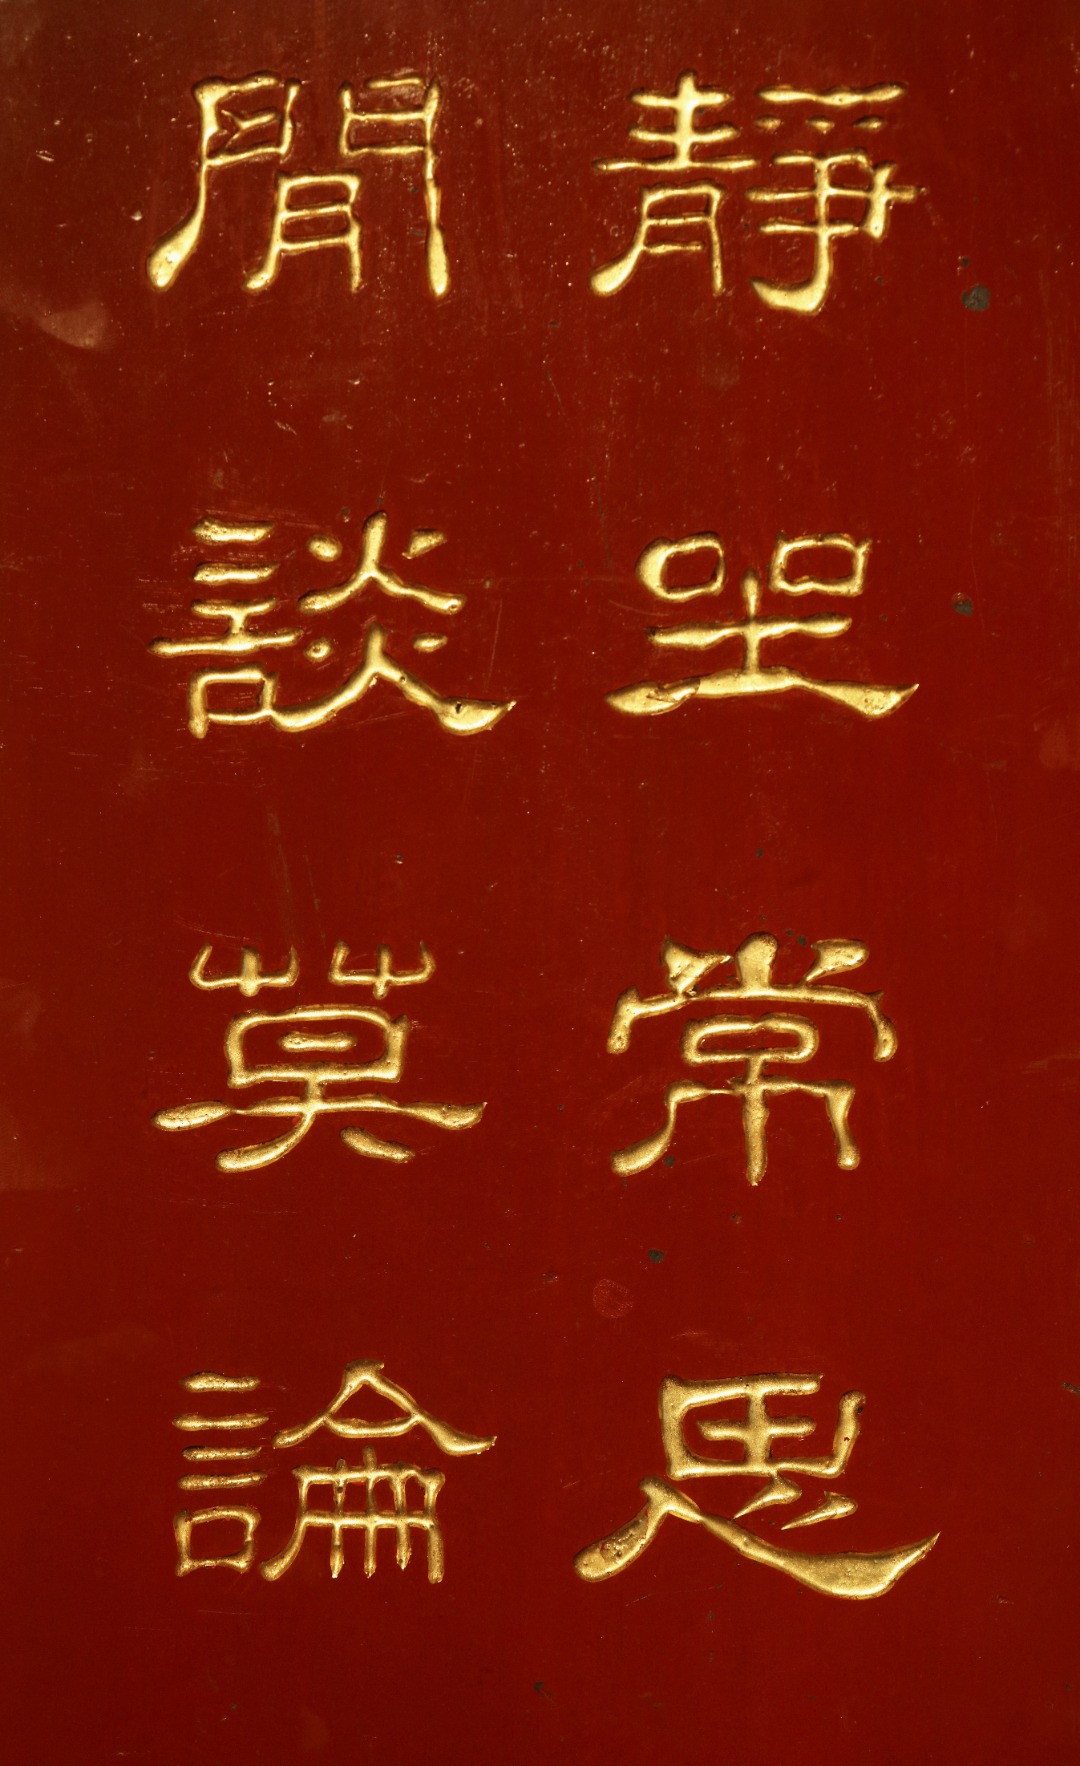 靜坐常思
閒談莫論